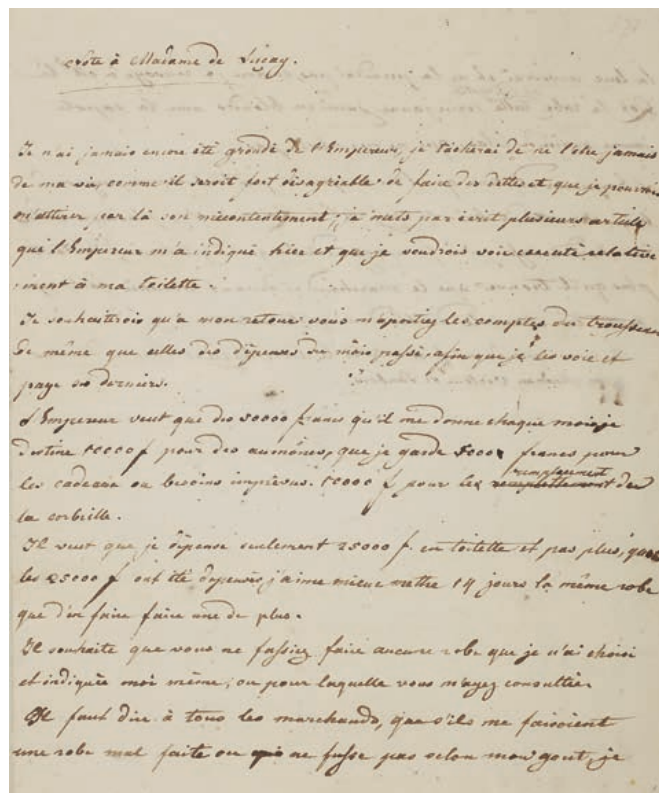 Note à Madame de Luçay.
Je n'ai jamais encore été grondé de l'Empereur, je tâcherai de ne l'être jamais
de ma vie, comme il seroit fort désagriable de faire des dettes et que je pourrois
m'attirer par là son mécontentement; je mets par écrit plusieurs article
que l'Empereur m'a indiqué hier et que je voudrois voir executé relative
ment à ma toilette.
Je souhaiterois qu'a mon retour vous m'aportiez les comptes du trousseau
de même que celles des dépenses du mois passé, afin que je les voie et
paye ses derniers.
L'Empereur veut que des 50000 francs qu'il me donne chaque mois je
destine 10000 f pour des aumônes, que je garde 5000 francs pour
les cadeaux ou besoins imprévus. 10000 f pour les remplacement de
la corbeille.
Il veut que je dépense seulement 25000 f. en toilette et pas plus, quand
les 25000 f ont été dépensés, j'aime mieux mettre 14 jours la même robe
que d'en faire faire une de plus.
Il souhaite que vous ne fassiez faire aucune robe que je n'ai choisi
et indiquée moi même, ou pour laquelle vous m'ayez consultée.
Il faut dire à tous les marchands, que s'ils me faisoient
une robe mal faite ou qui ne fusse pas selon mon gout, je